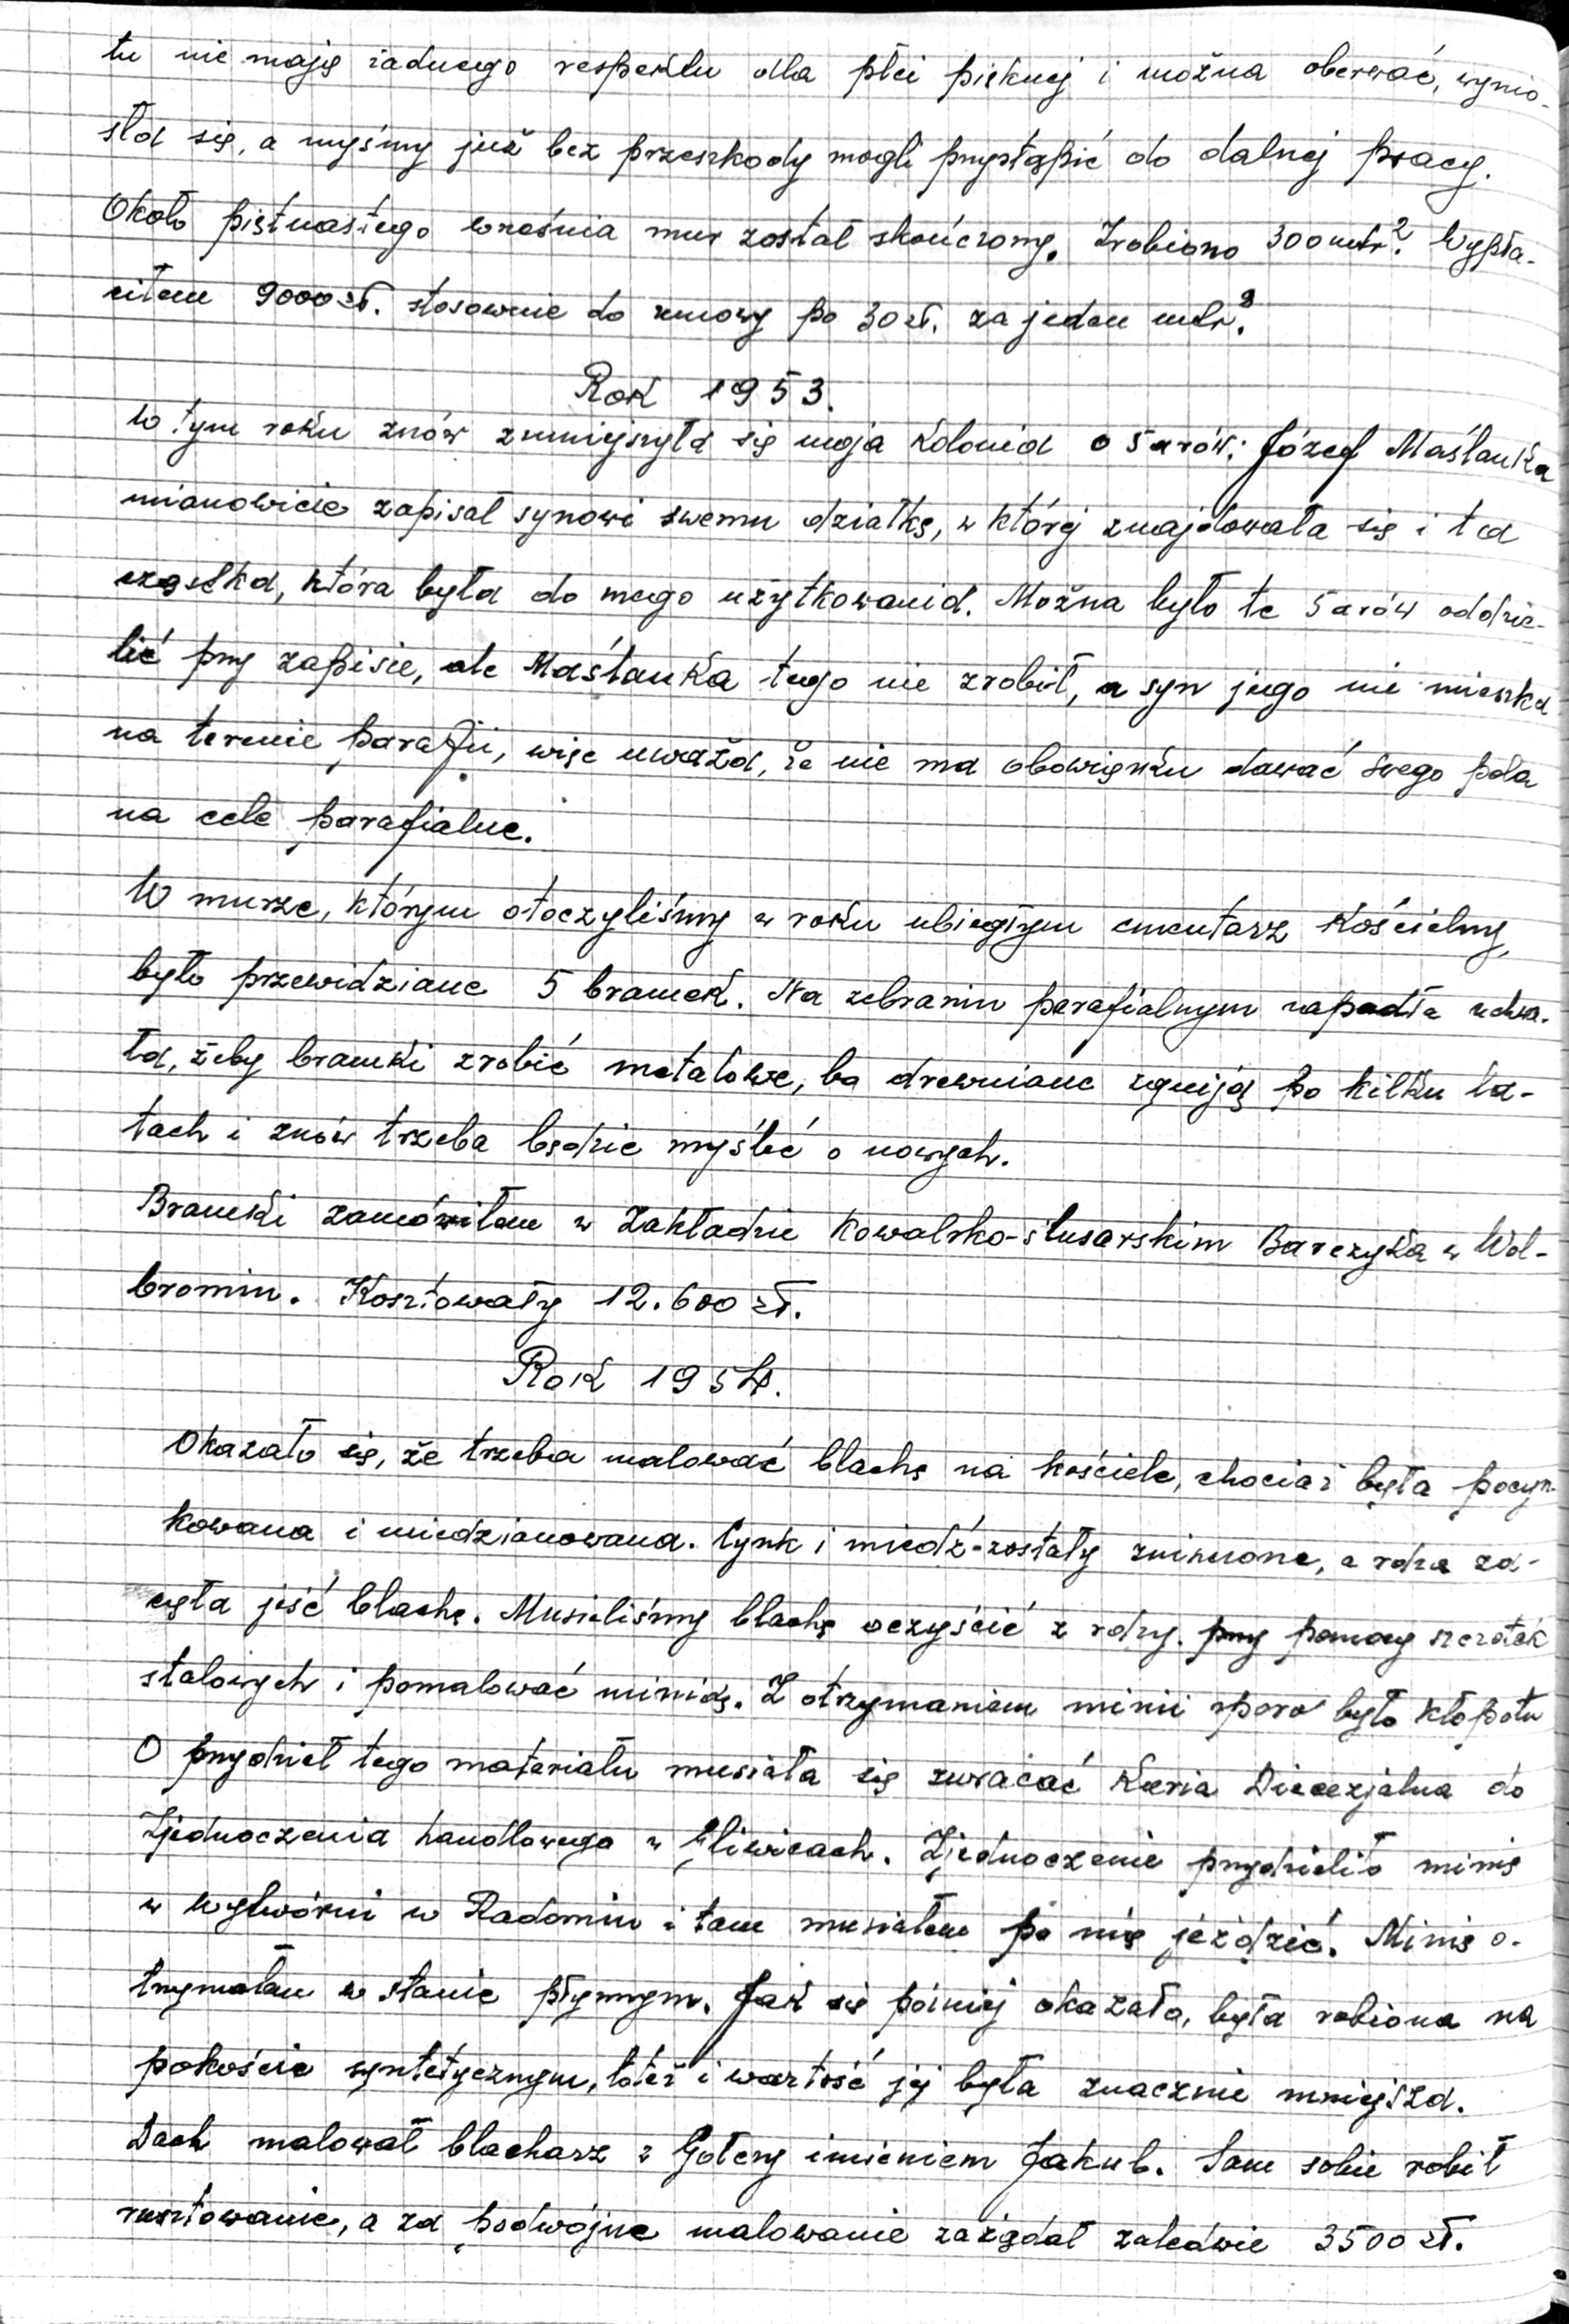 tu nie mają żadnego respektu dla płci pięknej i można oberwać, wynio-
sła się, a myśmy już bez przeszkody mogli przystąpić do dalnej pracy.
Około piętnastego września mur został skończony. Zrobiono 300 mtr². Wypła-
ciłem 9000 zł. stosownie do umowy po 30 zł. za jeden mtr².
Rok 1953.
W tym roku znów zmniejszyła się moja kolonia o 5 arów: Józef Maślanka
mianowicie zapisał synowi swemu działkę, w której znajdowała się i ta
cząstka, która była do mego użytkowania. Można było te 5 arów oddzie-
lić przy zapisie, ale Maślanka tego nie zrobił, a syn jego nie mieszka
na terenie parafji, więc uważa, że nie ma obowiązku dawać swego pola
na cele parafialne.
W murze, którym otoczyliśmy w roku ubiegłym cmentarz kościelny,
było przewidziane 5 bramek. Na zebraniu parafialnym zapadła uchwa-
ła, żeby bramki zrobić metalowe, bo drewniane zgniją po kilku la-
tach i znów trzeba będzie myśleć o nowych.
Bramki zamówiłem w Zakładzie Kowalsko-ślusarskim Barczyka w Wol-
bromiu. Kosztowały 12.600 zł.
Rok 1954.
Okazało się, że trzeba malować blachę na kościele, chociaż była pocyn-
kowana i miedziowana. Cynk i miedź zostały zniszczone, a rdza za-
częła jeść blachę. Musieliśmy blachę oczyścić z rdzy przy pomocy szczotek
stalowych i pomalować minią. Z otrzymaniem minii sporo było kłopotu
O przydział tego materiału musiała się zwracać Kuria Diecezjalna do
Zjednoczenia handlowego w Gliwicach. Zjednoczenie przydzieliło minię
w wytwórni w Radomiu i tam musiałem po nią jeździć. Minię o-
trzymałem w stanie płynnym. Jak się później okazało, była robiona na
pokoście syntetycznym, toteż i wartość jej była znacznie mniejsza.
Dach malował blacharz z Gołczy imieniem Jakub. Sam sobie robił
rusztowanie, a za podwójne malowanie zażądał zaledwie 3500 zł.